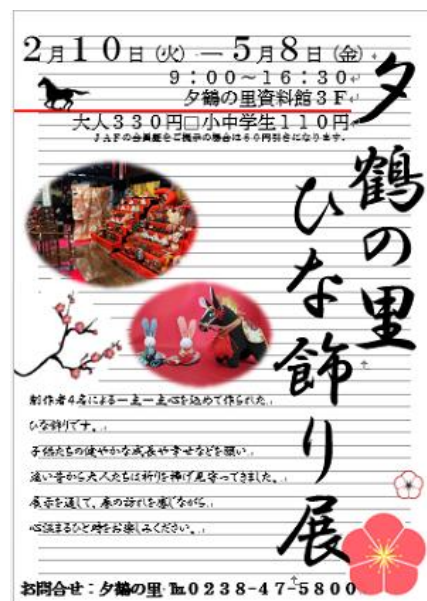 2月10日(火)―5月8日(金)
9:00~16:30
夕鶴の里資料館3F
大人330円□小中学生110円
JAFの会員証をご提示の場合は60円引きになります。
夕鶴の里
ひな飾り展
制作者4名による一点一点心を込めて作られた
ひな飾りです。
子供たちの健やかな成長や幸せなどを願い
遠い昔から大人たちは祈りを捧げ見守ってきました。
展示を通して、春の訪れを感じながら
心温まるひと時をお楽しみください。
お問合せ:夕鶴の里 ℡0238-47-5800